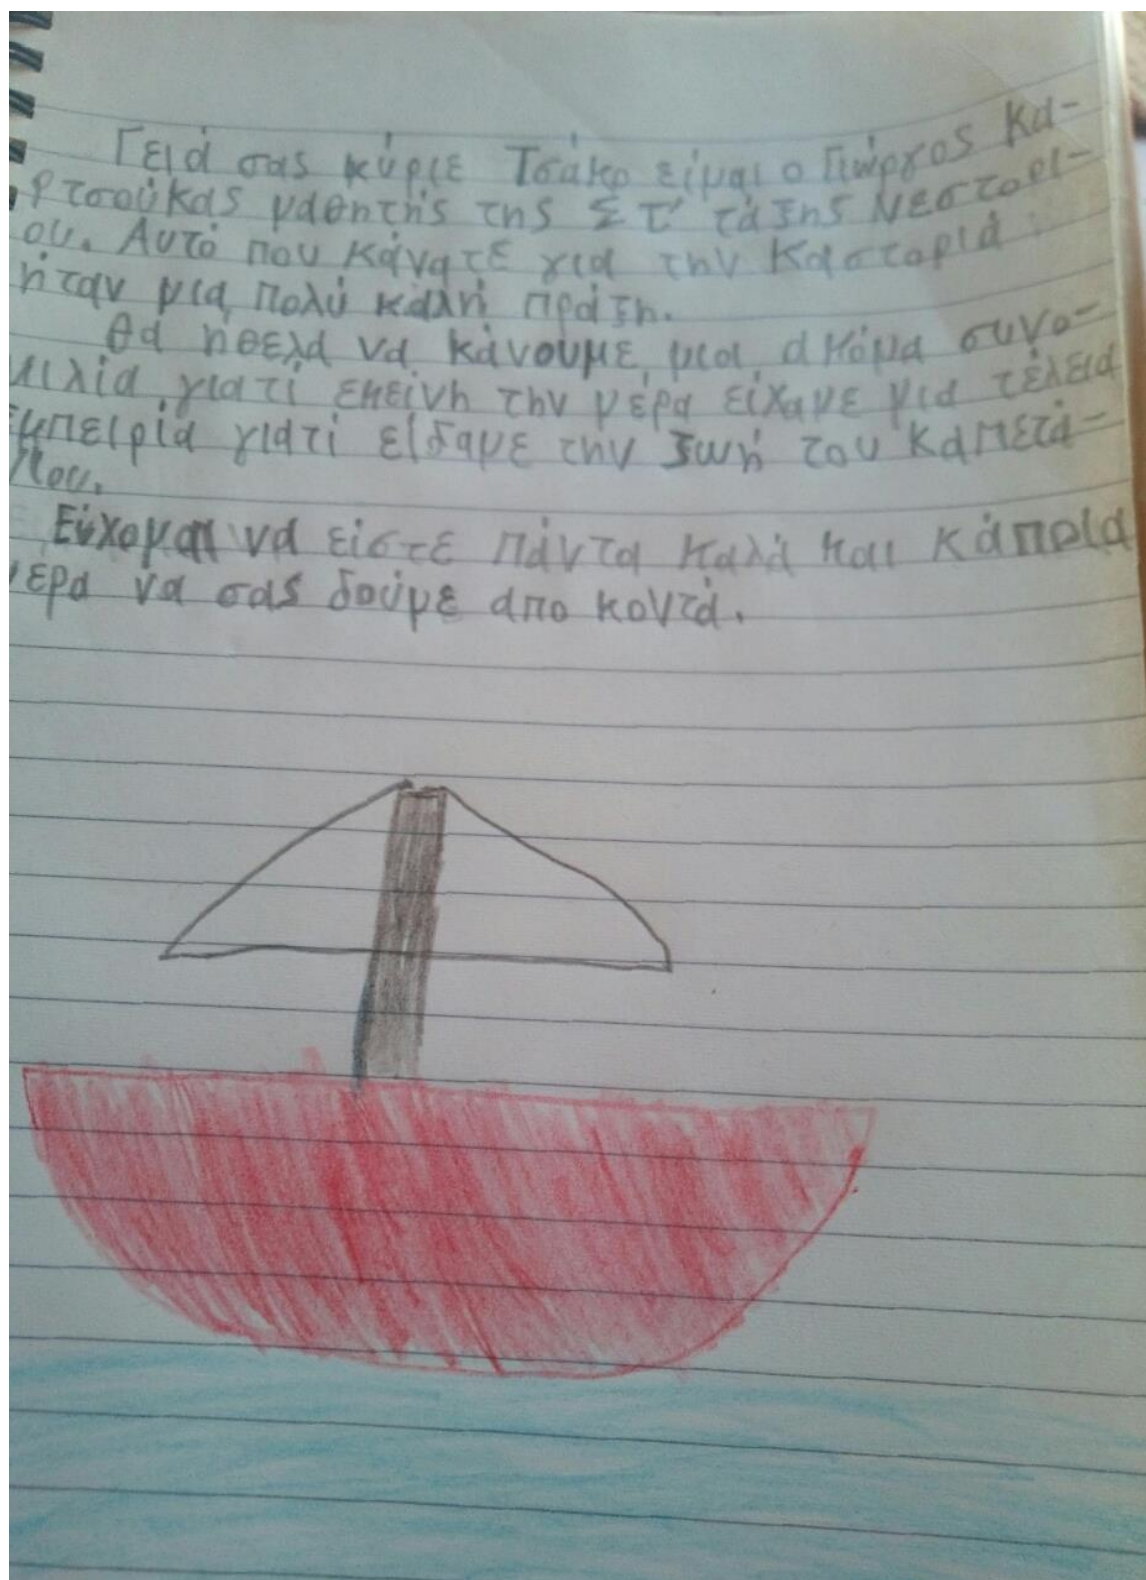 Γειά σας κύριε Τσάκο είμαι ο Γιώργος Κα-
ρτσούκας μαθητής της ΣΤ' τάξης Νεστορί-
ου. Αυτό που κάνατε για την Καστοριά
ήταν μια πολύ καλή πράξη.
Θα ήθελα να κάνουμε μια ακόμα συνο-
μιλία γιατί εκείνη την μέρα είχαμε μια τέλεια
εμπειρία γιατί είδαμε την ζωή του καπετά-
νιου.
Εύχομαι να είστε πάντα καλά και κάποια
μερα να σας δούμε απο κοντά.